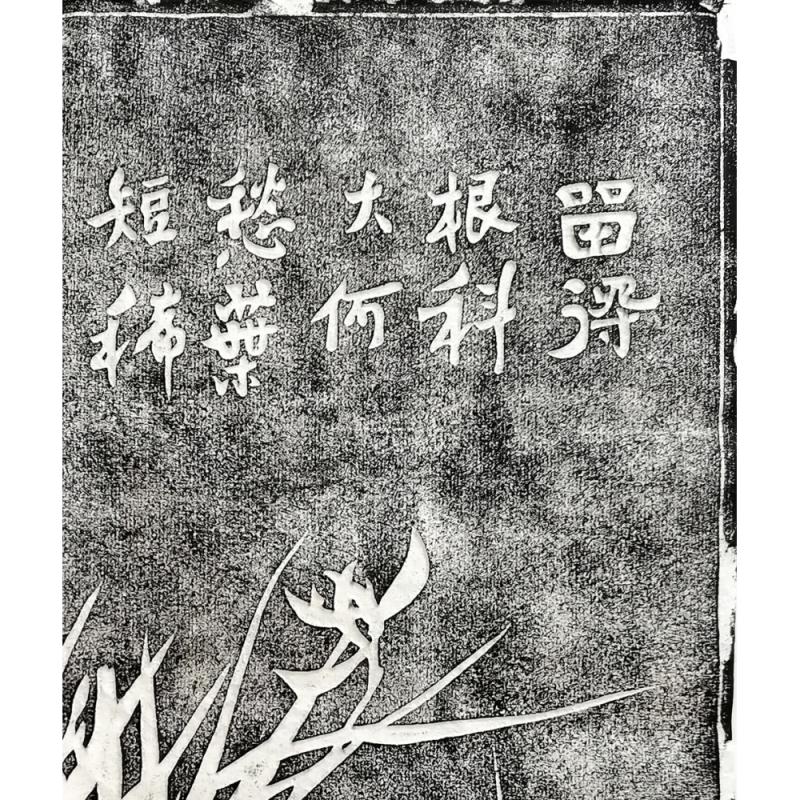 留得
根科
大何
愁葉
短稀